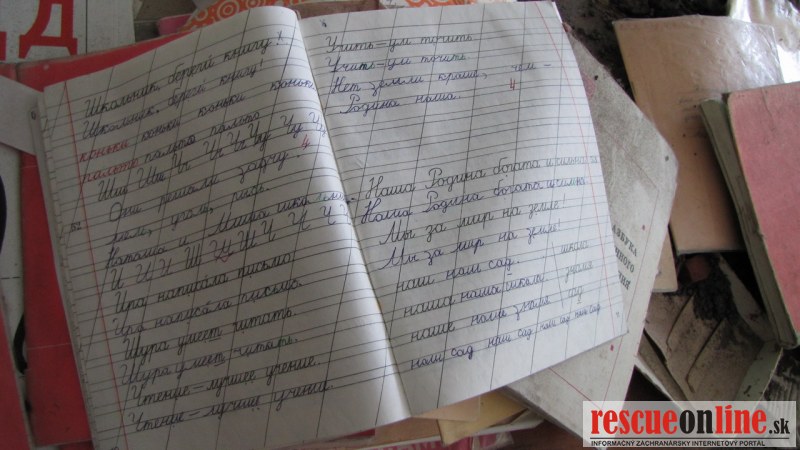 Школьник, береги книгу!
Школьник, береги книгу!
коньки коньки коньки коньки
пальто пальто пальто
Они решали задачу. 4
Наташа и
Ира написала письмо.
Ира написала письмо.
Шура умеет читать.
Шура умеет читать.
Чтение – лучшее учение.
Чтение – лучшее учение.
Учить – ум точить.
Учить – ум точить.
Нет земли краше, чем –
Родина наша. 4
Наша Родина богата и сильна
Наша Родина богата и сильна
Мы за мир на земле!
Мы за мир на земле!
наш наш сад. школа
наша наша школа
наше наше
наш сад наш сад наш сад наш сад
АЗБУКА
rescueonline.sk
INFORMAČNÝ ZÁCHRANÁRSKY INTERNETOVÝ PORTÁL